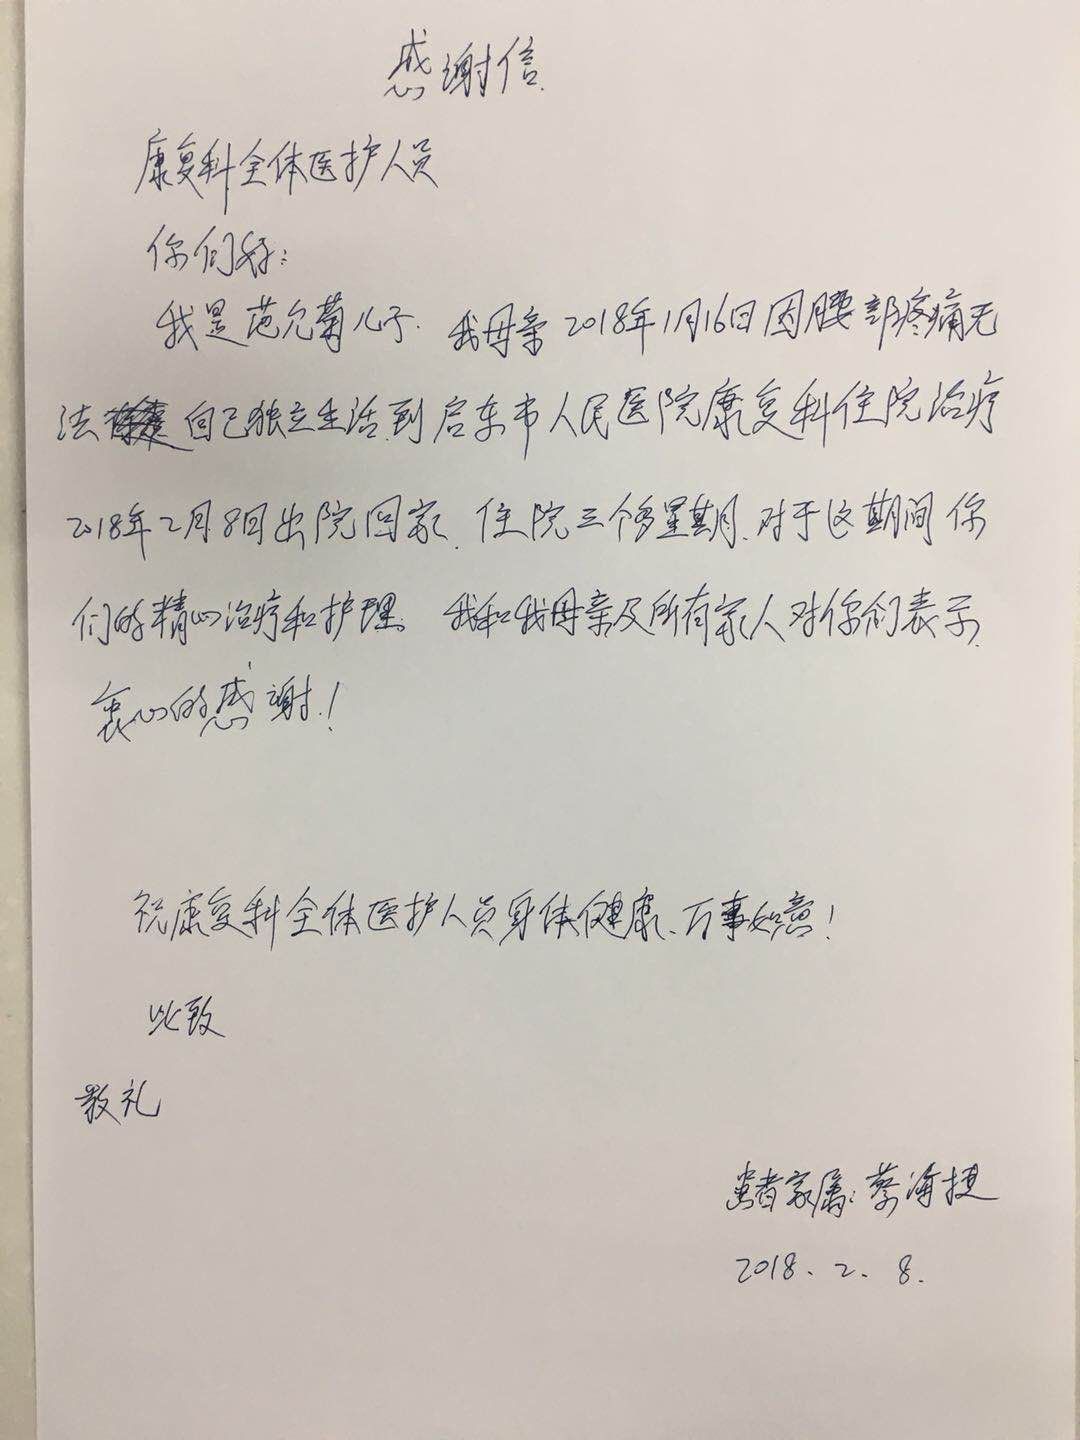 感谢信
康复科全体医护人员
你们好:
我是范允菊儿子.我母亲2018年1月16日因腰部疼痛无
法自己独立生活到启东市人民医院康复科住院治疗
2018年2月8日出院回家.住院三个多星期.对于这期间你
们的精心治疗和护理、我和我母亲及所有家人对你们表示
衷心的感谢!
祝康复科全体医护人员身体健康、万事如意!
此致
敬礼
患者家属:蔡海捷
2018.2.8.